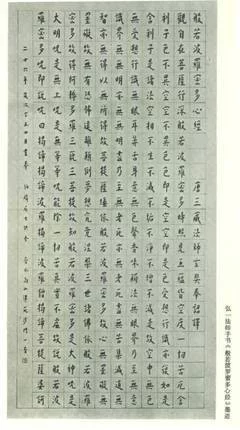 般若波羅蜜多心經 唐三藏法師玄奘奉詔譯
觀自在菩薩行深般若波羅蜜多時照見五蘊皆空度一切苦厄舍
利子色不異空空不異色色即是空空即是色受想行識亦復如是
舍利子是諸法空相不生不滅不垢不淨不增不減是故空中無色
無受想行識無眼耳鼻舌身意無色聲香味觸法無眼界乃至無意
識界無無明亦無無明盡乃至無老死亦無老死盡無苦集滅道無
智亦無得以無所得故菩提薩埵依般若波羅蜜多故心無罣礙無
罣礙故無有恐怖遠離顛倒夢想究竟涅槃三世諸佛依般若波羅
蜜多故得阿耨多羅三藐三菩提故知般若波羅蜜多是大神咒是
大明咒是無上咒是無等等咒能除一切苦真實不虛故說般若波
羅蜜多咒即說咒曰揭諦揭諦波羅揭諦波羅僧揭諦菩提薩婆訶
弘一法师手书《般若菠罗蜜多心经》墨迹